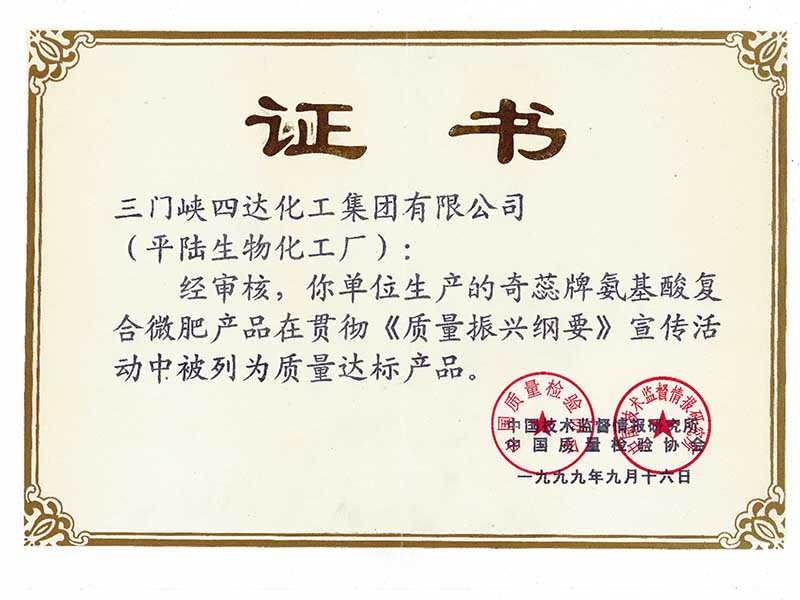 证 书
三门峡四达化工集团有限公司
（平陆生物化工厂）：
经审核，你单位生产的奇蕊牌氨基酸复
合微肥产品在贯彻《质量振兴纲要》宣传活
动中被列为质量达标产品。
中国技术监督情报研究所
中国质量检验协会
一九九九年九月十六日
中国质量检验协会
中国技术监督情报研究所